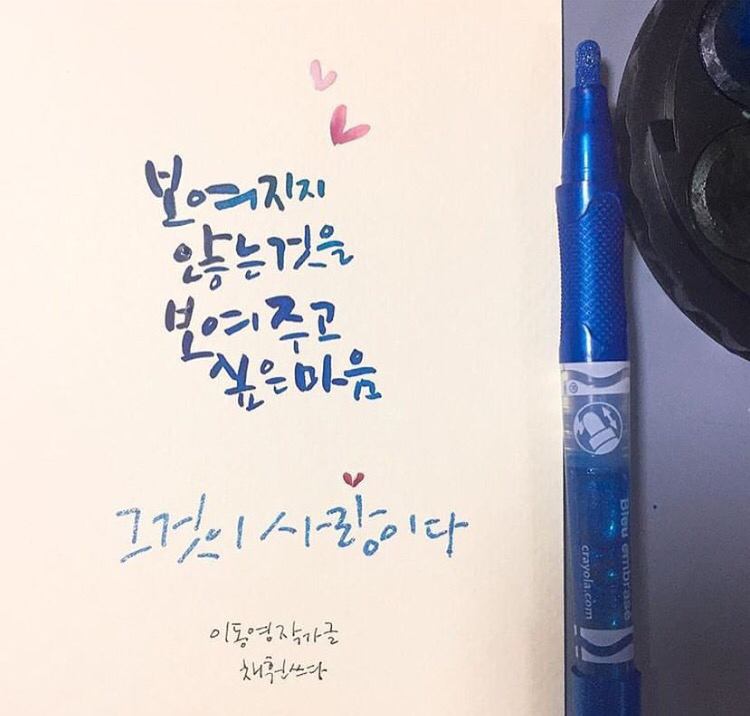 보여지지
않는것을
보여주고
싶은마음
그것이 사랑이다
이동영작가글
채훤쓰다
Bleu embrase
crayola.com